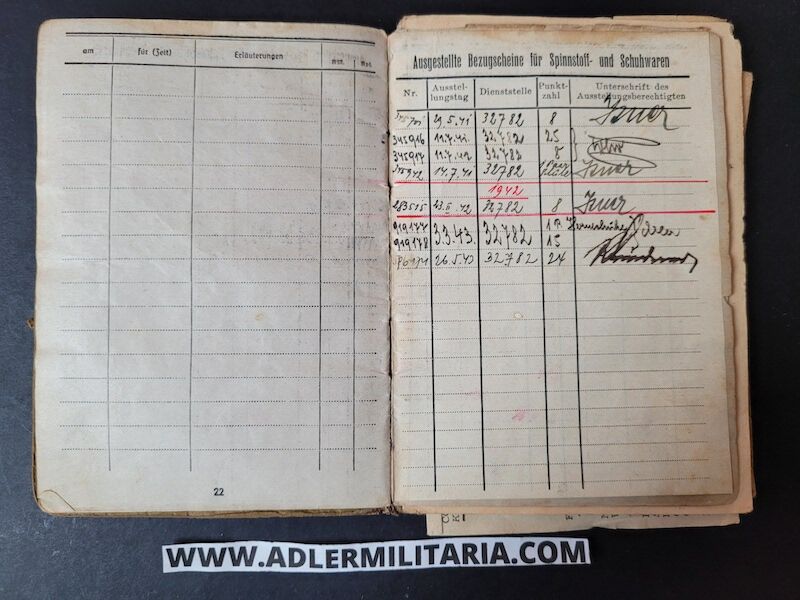 am für (Zeit) Erläuterungen
22
Ausgestellte Bezugscheine für Spinnstoff- und Schuhwaren
Nr. Ausstel-lungstag Dienststelle Punkt-zahl Unterschrift des Ausstellungsberechtigten
29.5.41 32782 8
345916 11.7.42. 32782 25
345917 11.7.42 32782 8
14.7.41 32782
1942
283515 23.6.42 32782 8
919177 3.3.43. 32782
919178 15
26.5.43 32782 24
WWW.ADLERMILITARIA.COM